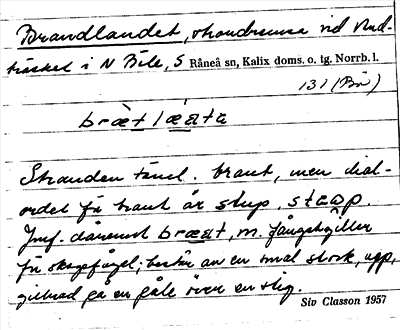 Brandlandet, strandremsa vid Änd-
träsket i N Böle, S Råneå sn, Kalix doms. o. tg. Norrb. l.
131 (Bö)
Stranden tämл. brant, men dial-
ordet för brant är stup,
Jmf. däremot m. fångstgiller
för skogsfågel; består av en smal stock, upp-
gillrad på en gåle över en stig.
Siv Classon 1957